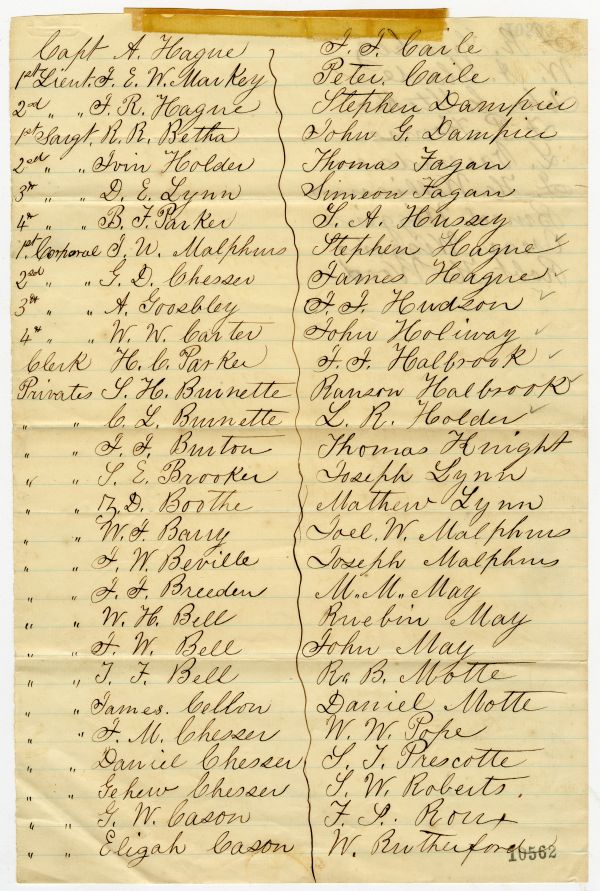 Capt A. Hague
1st Lieut. J. E. W. Markey
2nd " " J. R. Hague
1st Sargt. R. R. Betha
2ed " " Ivin Holder
3d " " D. E. Lynn
4th " " B. F. Parker
1st Corporal J. W. Malphurs
2nd " " G. D. Chesser
3d " " A. Goosbley
4th " " W. W. Carter
Clerk H. C. Parker
Privates S. H. Burnette
" " C. L. Burnette
" " J. J. Burton
" " S. E. Brooker
" " D. Boothe
" " W. J. Barry
" " J. W. Beville
" " J. J. Breeden
" " W. H. Bell
" " J. W. Bell
" " T. F. Bell
" " James Cellon
" " J. M. Chesser
" " Daniel Chesser
" " Gehew Chesser
" " G. W. Cason
" " Eligah Cason
J. J. Caile
Peter Caile
Stephen Dampier
John G. Dampier
Thomas Fagan
Simeon Fagan
S. A. Hussey
Stephen Hague
James Hague
J. J. Hudson
John Holiway
J. J. Halbrook
Ranson Halbrook
L. R. Holder
Thomas Knight
Joseph Lynn
Mathew Lynn
Joel W. Malphurs
Joseph Malphurs
M. M. May
Ruebin May
John May
R. B. Motte
Daniel Motte
W. W. Pope
S. T. Prescotte
S. W. Roberts.
F. S. Roux
W. Rutherford
10562